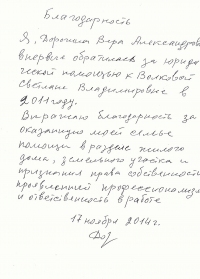 Благодарность
Я, Доронина Вера Александров
впервые обратилась за юриди
ческой помощью к Волковой
Светлане Владимировне в
2011 году.
Выражаю благодарность за
оказанную моей семье
помощи в разделе жилого
дома, земельного участка и
признания права собственности,
проявленный профессионализм
и ответственность в работе
17 ноября 2014г.